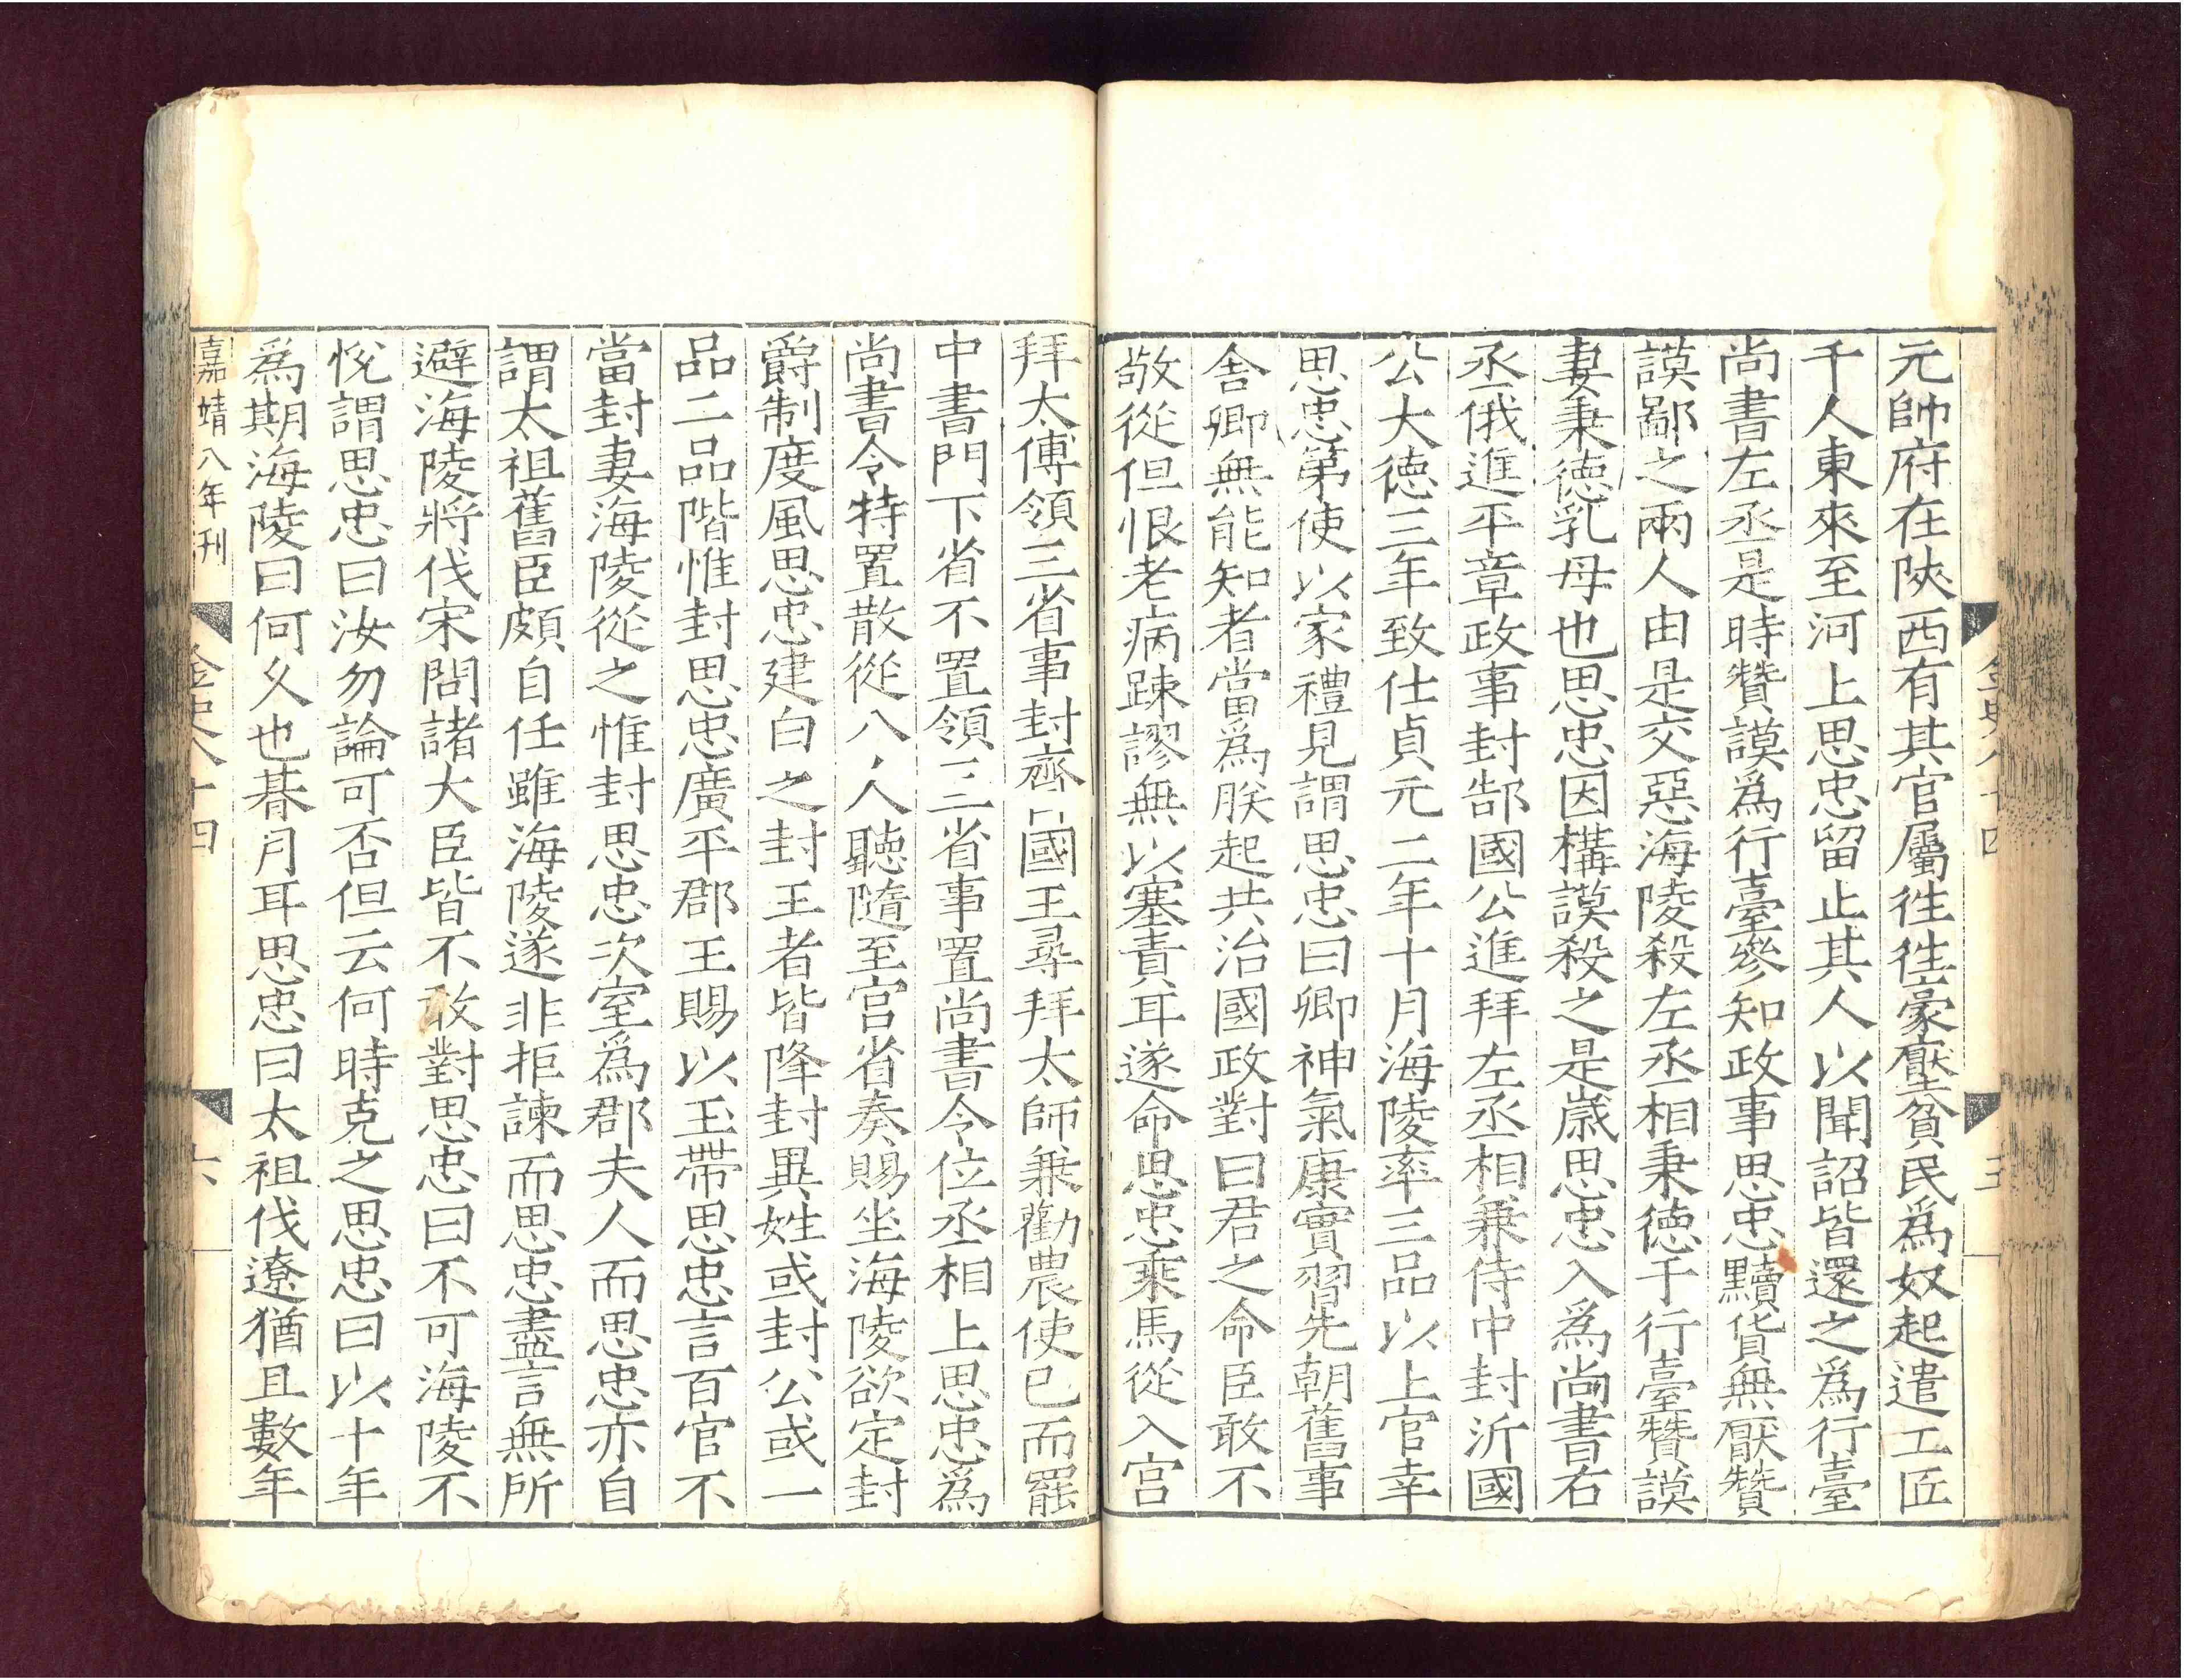 元帥府在陝西有其官屬徃徃豪壓貧民爲奴起遣工匠
千人東來至河上思忠留止其人以聞詔皆還之爲行臺
尚書左丞是時贊謨爲行臺參知政事思忠黷貨無厭贊
謨鄙之兩人由是交惡海陵殺左丞相秉德于行臺贊謨
妻秉德乳母也思忠因構謨殺之是歲思忠入爲尚書右
丞俄進平章政事封郜國公進拜左丞相兼侍中封沂國
公大德三年致仕貞元二年十月海陵率三品以上官幸
思忠第使以家禮見謂思忠曰卿神氣康實習先朝舊事
舍卿無能知者當爲朕起共治國政對曰君之命臣敢不
敬從但恨老病踈謬無以塞責耳遂命思忠乘馬從入宮
拜太傅領三省事封齊國王尋拜太師兼勸農使已而罷
中書門下省不置領三省事置尚書令位丞相上思忠爲
尚書令特置散從八人聽隨至宮省奏賜坐海陵欲定封
爵制度風思忠建白之封王者皆降封異姓或封公或一
品二品階惟封思忠廣平郡王賜以玉帶思忠言百官不
當封妻海陵從之惟封思忠次室爲郡夫人而思忠亦自
謂太祖舊臣頗自任雖海陵遂非拒諫而思忠盡言無所
避海陵將伐宋問諸大臣皆不敢對思忠曰不可海陵不
悅謂思忠曰汝勿論可否但云何時克之思忠曰以十年
爲期海陵曰何久也朞月耳思忠曰太祖伐遼猶且數年
嘉靖八年刊 金史八十四 六